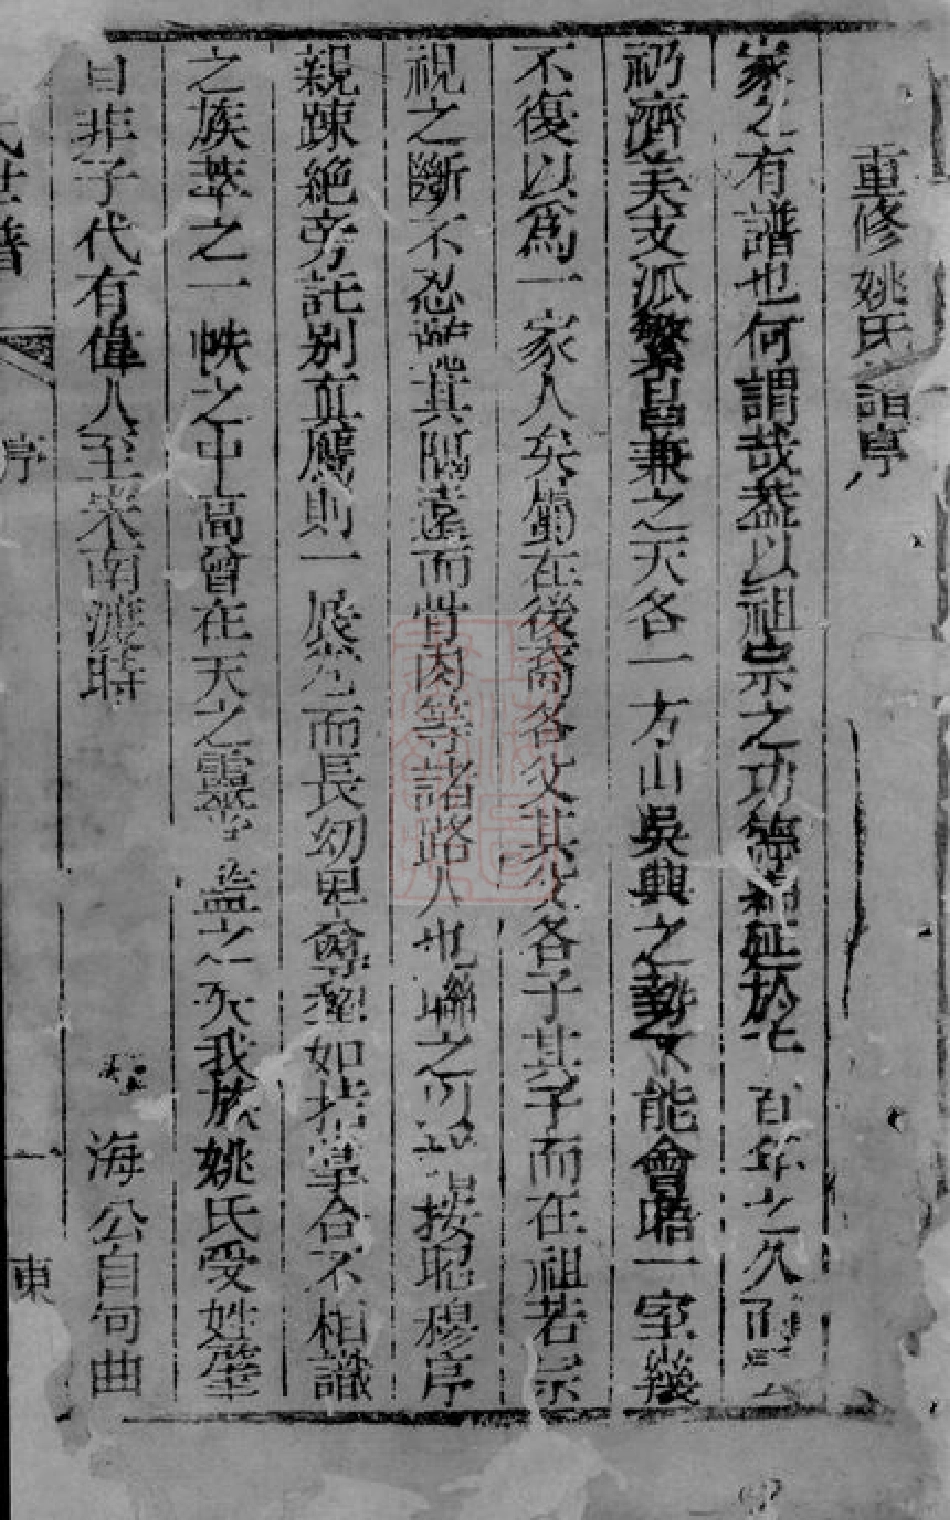 重修姚氏譜序
家之有譜也何謂哉葢以祖宗之功德綿延於七百年之久而
礽濟美支派繁昌兼之天各一方山吳興之勢不能會晤一室幾
不復以爲一家人矣嗣在後裔各父其父各子其子而在祖若宗
視之斷不忍謂其隔遠而骨肉等諸路人也聯之可按昭穆序
親踈絶旁託別直鷹則一展卷而長幼卑尊犂如指掌合不相識
之族萃之一帙之中高曾在天之靈葢之矣我族姚氏受姓
自非子代有偉人至宋南渡時 海公自句曲
氏世譜 序 一 東